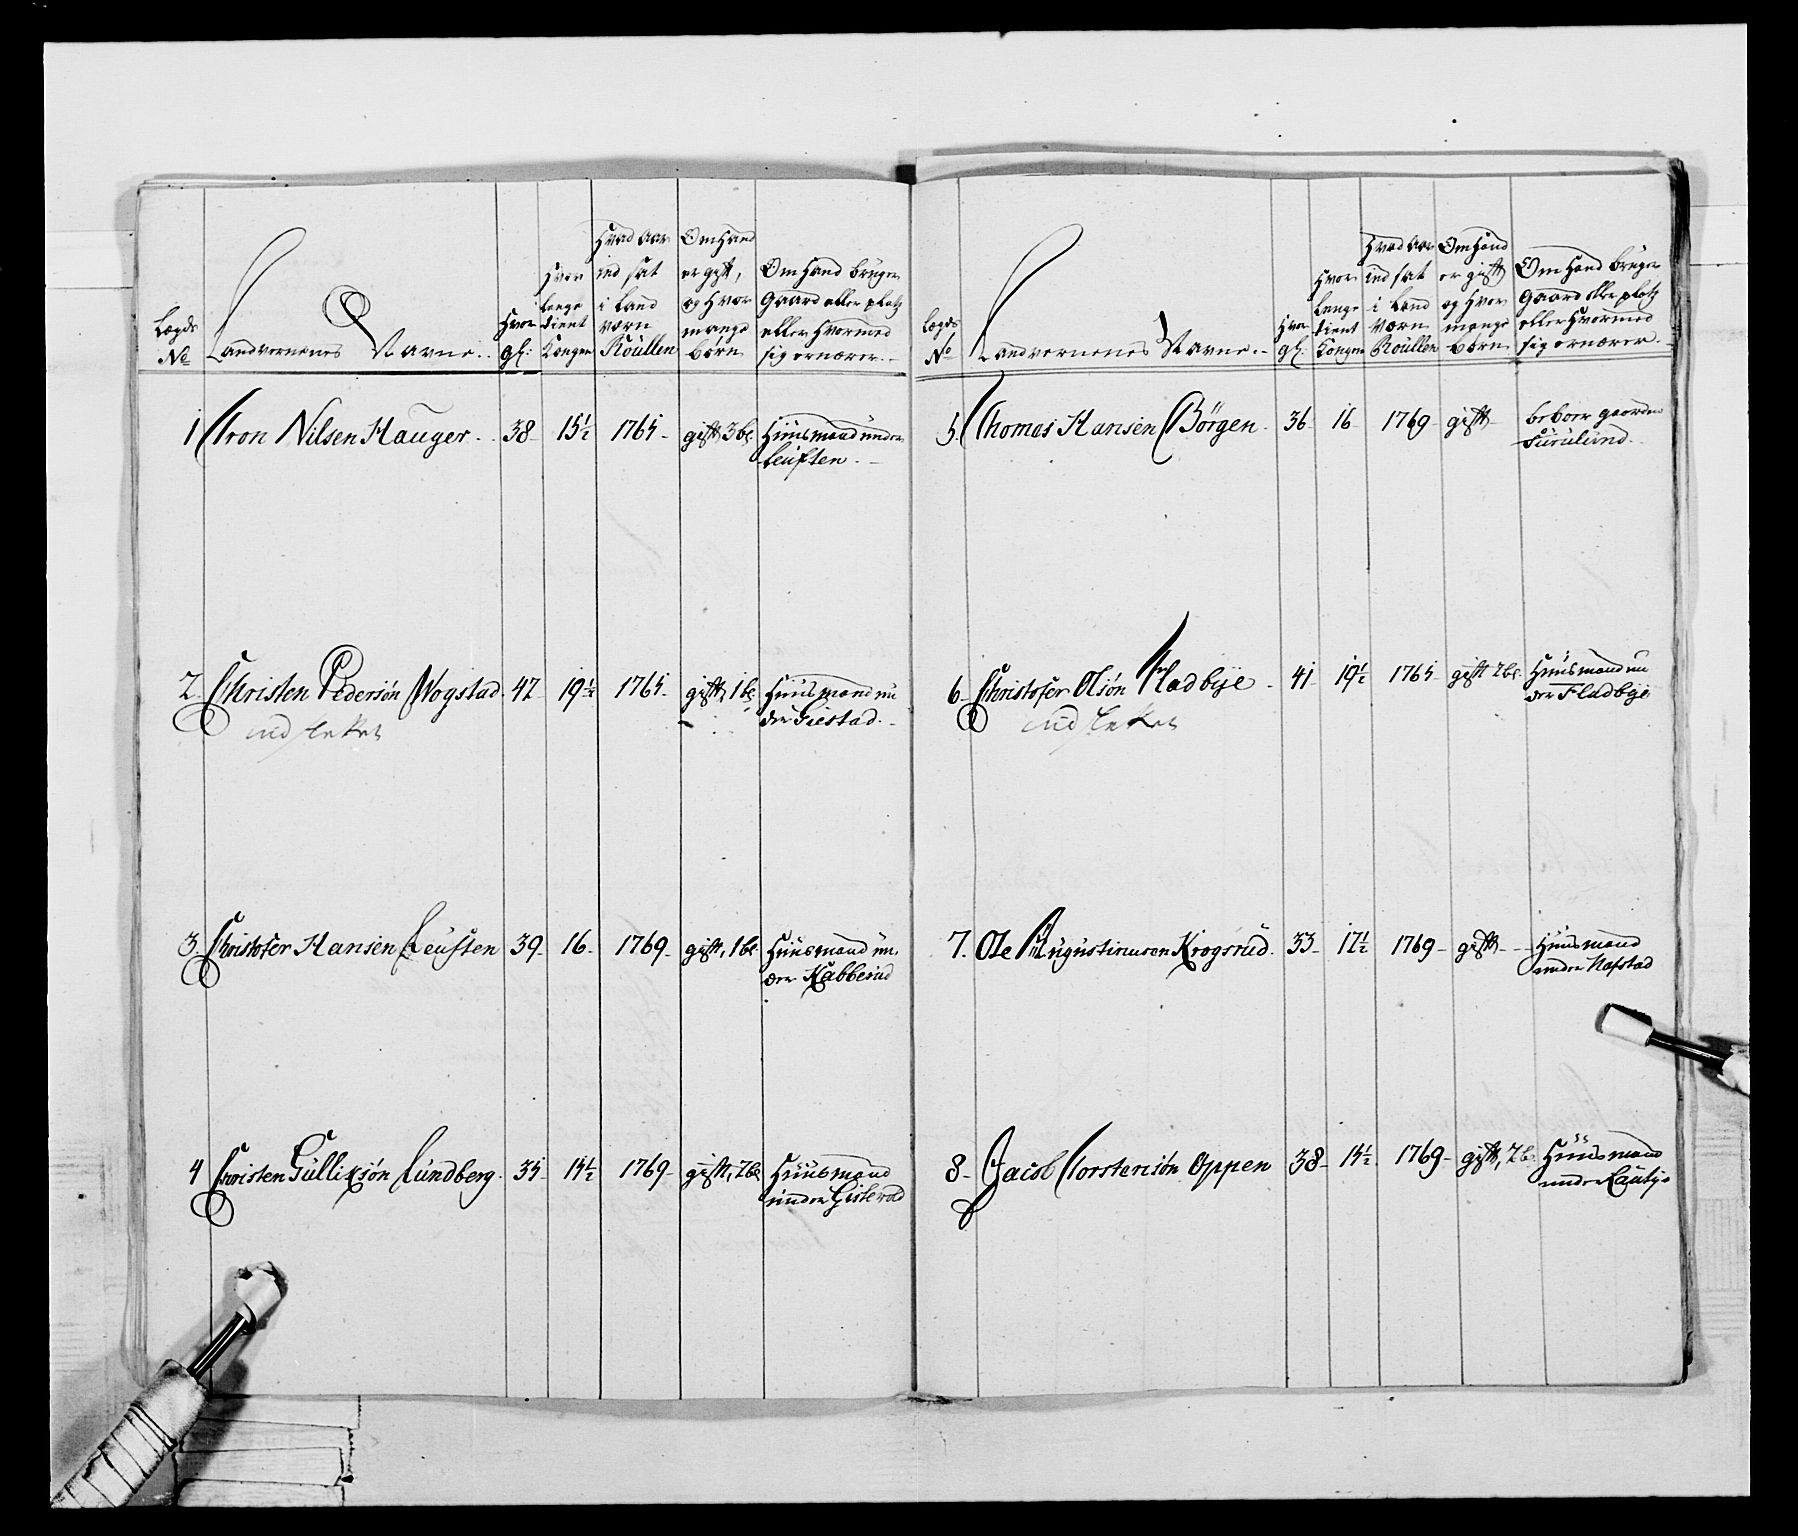 Lægds No
Landvernenes Navne.
Hvor gl:
Hvor lenge tient Kongen
Hvad Aar ind sat i Land værn Roullen
Om Hand er gift, og Hvor mange børn
Om Hand bruger Gaard eller platz eller Hvormed sig ernærer.
1 Tron Nilsen Hauger. 38 15½ 1765 gift 3 b: Huusmand under
Leuften.
2. Christen Pedersøn Wogstad 42 19½ 1765 gift, 1 b: Huusmand un
der Giestad.
ind
3. Christofer Hansen Leuften 39 16 1769 gift, 1 b: Huusmand un
der Kabberud
4 Christen Gullixsøn Lundberg. 35 15½ 1769 gift, 2 b: Huusmand
under
Lægds No
Landvernenes Navne.
Hvor gl:
Hvor lenge tient Kongen
Hvad Aar ind sat i Land værn Roullen
Om Hand er gift og Hvor mange Børn
Om Hand bruger Gaard eller platz eller Hvormed sig ernærer.
5. Thomas Hansen Børgen. 36 16 1769 gift beboer gaarden
Furulund.
6 Christofer Olsøn Fladbye 41 19½ 1765 gift 2 b: Huusmand un
der Fladbye
ind
7. Ole Augustinusen Krogsrud. 33 17½ 1769 gift Huusmand
under Nafstad
8 Jacob Torstensøn Oppen 38 15½ 1769 gift, 2 b: Huusmand
under